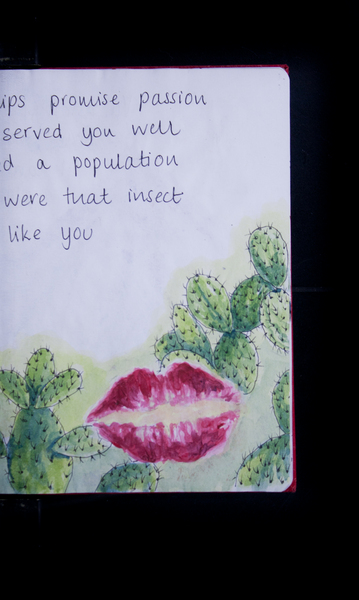 ips promise passion
served you well
d a population
were that insect
like you